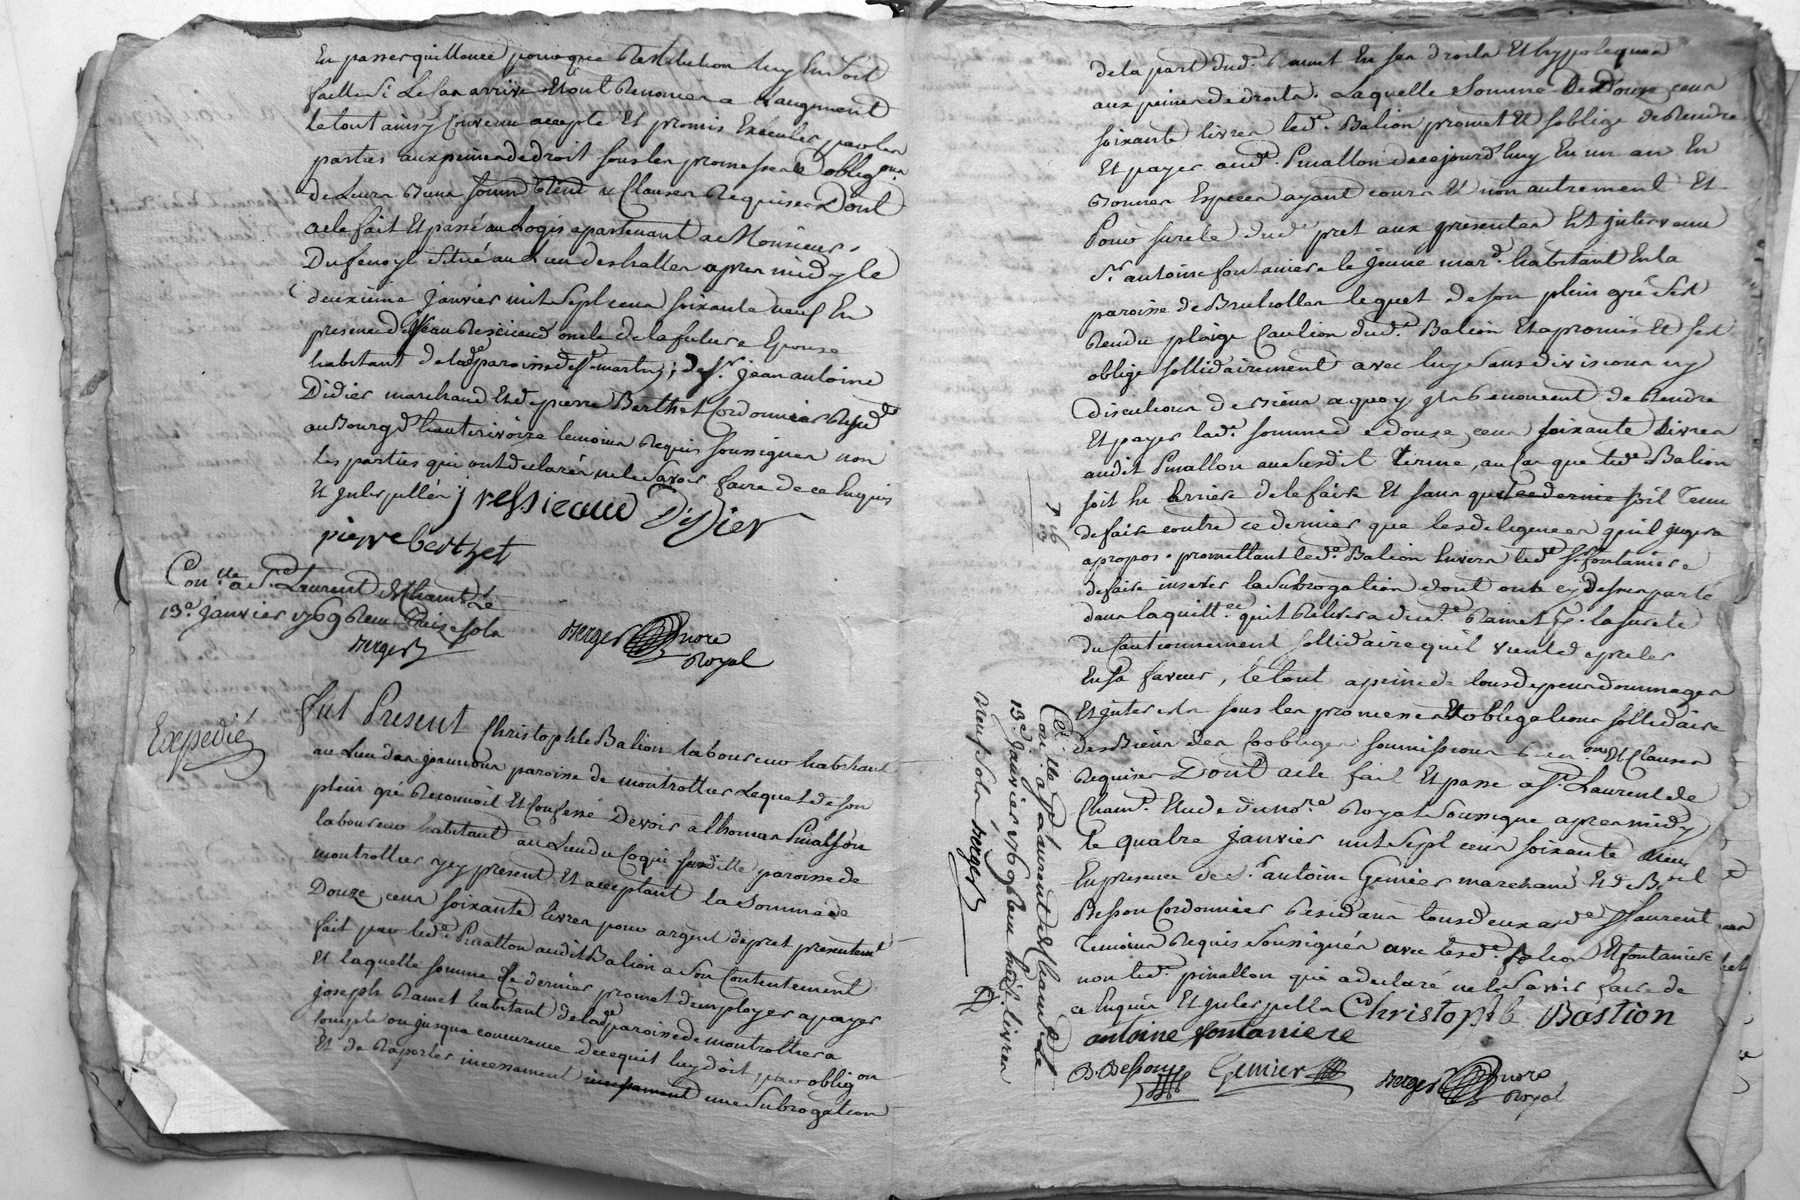 En passer quillance pour que Restitution luy En soit
faitte si Le Cas arrive Et ont Renoncer a L'augment
le tout ainsy Convenu accepté Et promis Executer par les
parties aux peines de droit sous les promesses oblig.ons
de Leurs Biens soum Rend & Clauses Requises Dont
acte fait Et passé au Logis apartenant a Monsieur
Dufenoyl Situé au Lieu des halles apres midy le
deuxieme Janvier mil Sept cens soixante neuf En
presence de Jean Ressicaud oncle de la future Epouse
habitant de lad.e paroisse de St martin; de Sr. Jean antoine
Didier marchand Et de pierre Berthet Cordonnier Resid.t
au Bourg d'hauterivoire temoins Requis soussignes non
Les parties qui ont declarés ne le savoir faire de ce Enquis
Et Interpellés J ressicaud Didier
pierre berthet
Con.lle a St. Laurent de Chamt.
13.e Janvier 1769 Reçu Treize sols
Berger
Berger nore
Royal
Expedié
fut Present Christophle Balion laboureur habitant
au Lieu des Jeannons paroisse de montrottier Lequel de son
plein gré Reconnoit Et Confessé Devoir a thomas Pinallon
laboureur habitant au Lieu du Coqui paroisse de
montrottier yey present Et acceptant la Somme de
Douze cens soixante livres pour argent de pret presentemt
fait par led.e Pinallon audit Balion a son Contentement
Et laquelle somme Ce dernier promet d'employer a payer
joseph Ramet habitant de lad.e paroisse de montrottier a
compte ou jusqua concurence de ce quil luy doit par oblig.on
Et de Raporter incessament incessament une Subrogation
de la part dud.e Ramet En ses droits Et hypoteques
aux peines de droits. Laquelle Somme De Douze cens
soixante livres led.e Balion promet Et soblige de Rendre
Et payer aud.e Pinallon de ce jourd'huy En un an En
Bonnes Especes ayant cours Et non autrement Et
Pour sureté dud.e pret aux presentes Est Intervenu
Sr. antoine fontaniere le Jeune mar.d habitant En la
paroisse de Brullolles lequel de son plein gré sest
Rendu pleige Caution dud.e Balion Et a promis Et sest
obligé sollidairement avec luy sans division ny
discution de Biens a quoy Il a Renoncent de Rendre
Et payer lad.e somme de douze cens soixante livres
audit Pinallon au susdit terme, au Cas que led.e Balion
soit En arriere de le faire Et sans que ce dernier soit tenu
de faire contre ce dernier que les deligences quil jugera
apropos. promettant led.e Balion Envers led.e Sr. fontaniere
de faire inserer la Subrogation dont on a cy dessus parlé
dans la quitt.ce quil Relivera dud.e Ramet pr. la sureté
du Cautionnement sollidaire quil vient de preter
En sa faveur, le tout a peine de tous depens dommages
Et Interets sous les promesses Et obligations sollidaire
des Biens des Coobliges soumissions Ren.ons Et Clauses
Requises Dont acte fait Et passé a St. Laurent de
Cham.t Etude du no.re Royal Soussigné apres midy
le quatre Janvier mil Sept cens soixante neuf
En presence de Sr. antoine Genier marchand Et de B
Besson Cordonnier Residans tous deux aud.e St Laurent
temoins Requis Soussignés avec lesd.e Balion Et fontaniere
non led.e pinallon qui a declaré ne le Savoir faire de
ce Enquis Et Interpellés Christophle Bastion
antoine fontaniere
B Besson Genier Berger nore
Royal
Con.lle a St Laurent de Cham.t le
13.e Janvier 1769 Reçu huit livres
neuf sols Berger